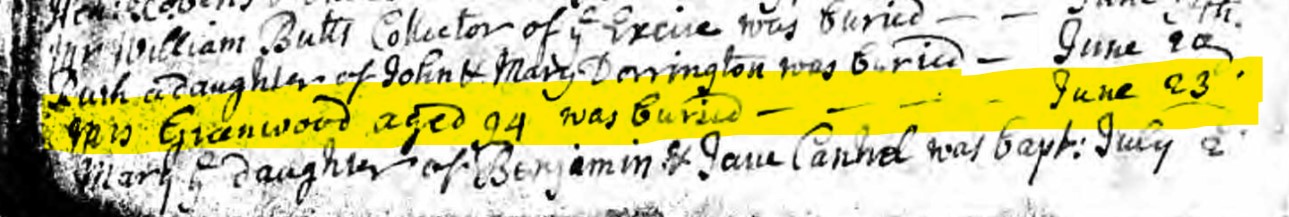 Mr William Butts Collector of ye Excise was buried — — June
Ruth a daughter of John & Mary Dorrington was buried — June 20
Mrs Greenwood aged 94 was buried — — — — June 23
Mary ye daughter of Benjamin & Jane Canhel was bapt: July 2